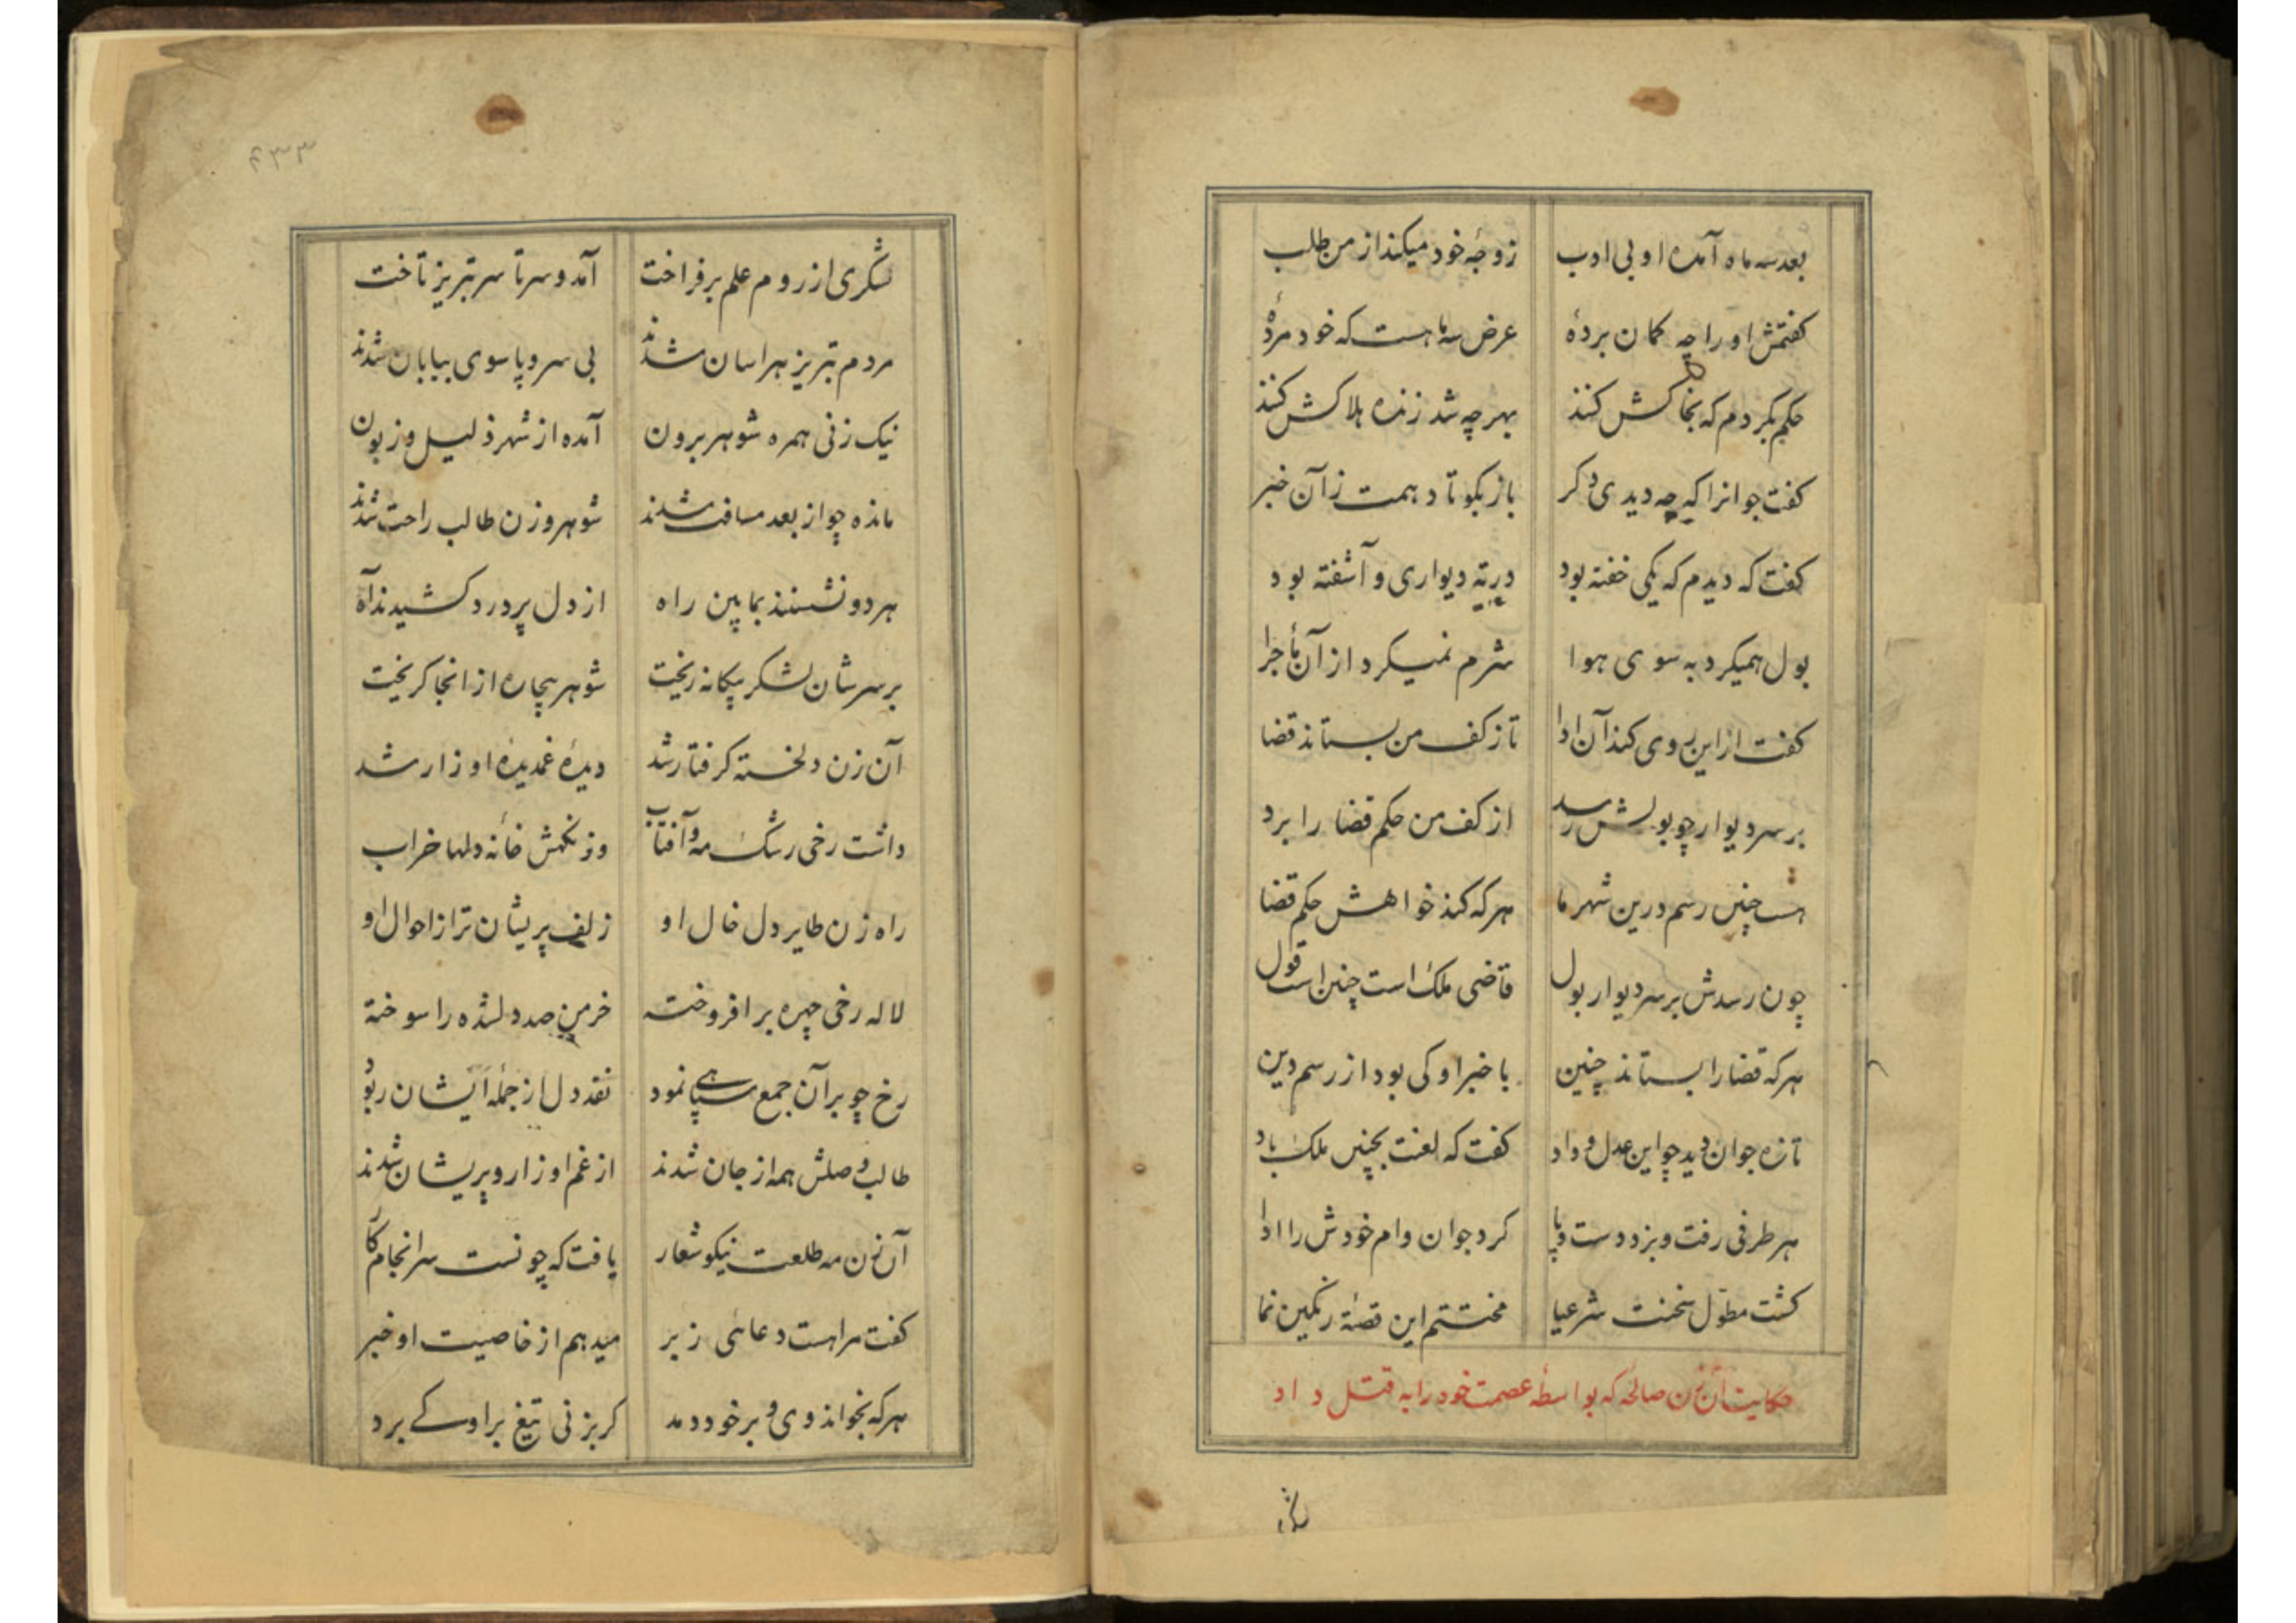 بعد سه ماه آمده او بی ادب زوجهٔ خود میکند از من طلب
کفتمش او را چه کمان بردهٔ عرض سه ماهست که خود مردهٔ
حکم بکردم که بخاکش کنند بهر چه شد زنده هلاکش کنند
کفت جوانرا که چه دیدی دکر باز بکو تا دهمت زآن خبر
کفت که دیدم که یکی خفته بود در ته دیواری و آشفته بود
بول همیکرد به سوی هوا شرم نمیکرد از آن ماجرا
کفت از این روی کند آن ادا تا ز کف من بستاند قضا
بر سر دیوار چو بولش رسد از کف من حکم قضا را برد
هست چنین رسم درین شهر ما هر که کند خواهش حکم قضا
چون رسدش بر سر دیوار بول قاضی ملک است چنین است قول
هر که قضا را بستاند چنین با خبر او کی بود از رسم دین
تازه جوان دید چو این عدل و داد کفت که لعنت بچنین ملک باد
هر طرفی رفت و بزد دست و پا کرد جوان وام خودش را ادا
کشت مطوّل سخنت شرعیا مختتم این قصهٔ رنکین نما
حکایت آن زن صالحه که بواسطهٔ عصمت خود را به قتل داد
لشکری از روم علم برفراخت آمد و سر تا سر تبریز تاخت
مردم تبریز هراسان شدند بی سر و پا سوی بیابان شدند
نیک زنی همره شوهر برون آمده از شهر ذلیل و زبون
مانده چو از بعد مسافت شدند شوهر و زن طالب راحت شدند
هر دو نشستند بمابین راه از دل پر درد کشیدند آه
بر سرشان لشکر بیکانه ریخت شوهر بیچاره از انجا کریخت
آن زن دلخسته کرفتار شد دیدهٔ غمدیدهٔ او زار شد
داشت رخی رشک مه و آفتاب وز نکهش خانهٔ دلها خراب
راه زن طایر دل خال او زلف پریشان تر از احوال او
لاله رخی چهره برافروخته خرمن صد دلشده را سوخته
رخ چو بر آن جمع سپاهی نمود نقد دل از جملهٔ ایشان ربود
طالب وصلش همه از جان شدند از غم او زار و پریشان شدند
آن زن مه طلعت نیکو شعار یافت که چونست سرانجام کار
کفت مرا هست دعائی ز بر میدهم از خاصیت او خبر
هر که بخواند وی و بر خود دمد کر بزنی تیغ بر او کے برد